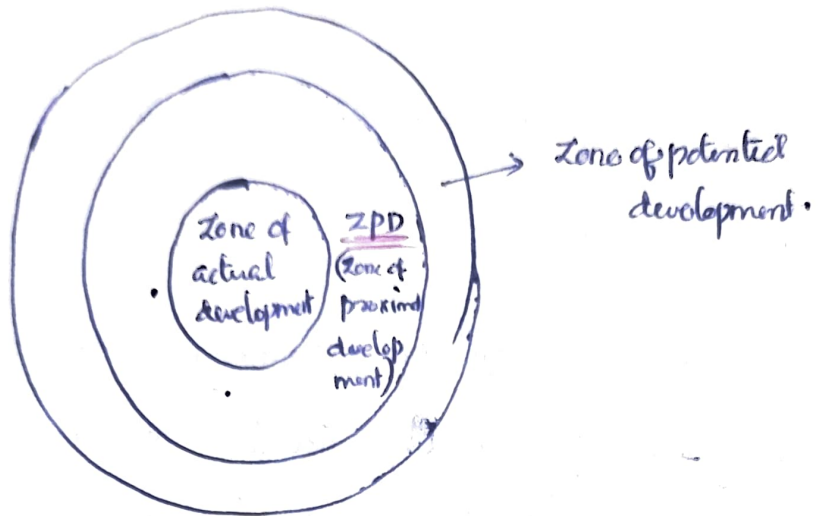 Zone of
actual
development
ZPD
(Zone of
proximal
develop
ment)
Zone of potential
development.